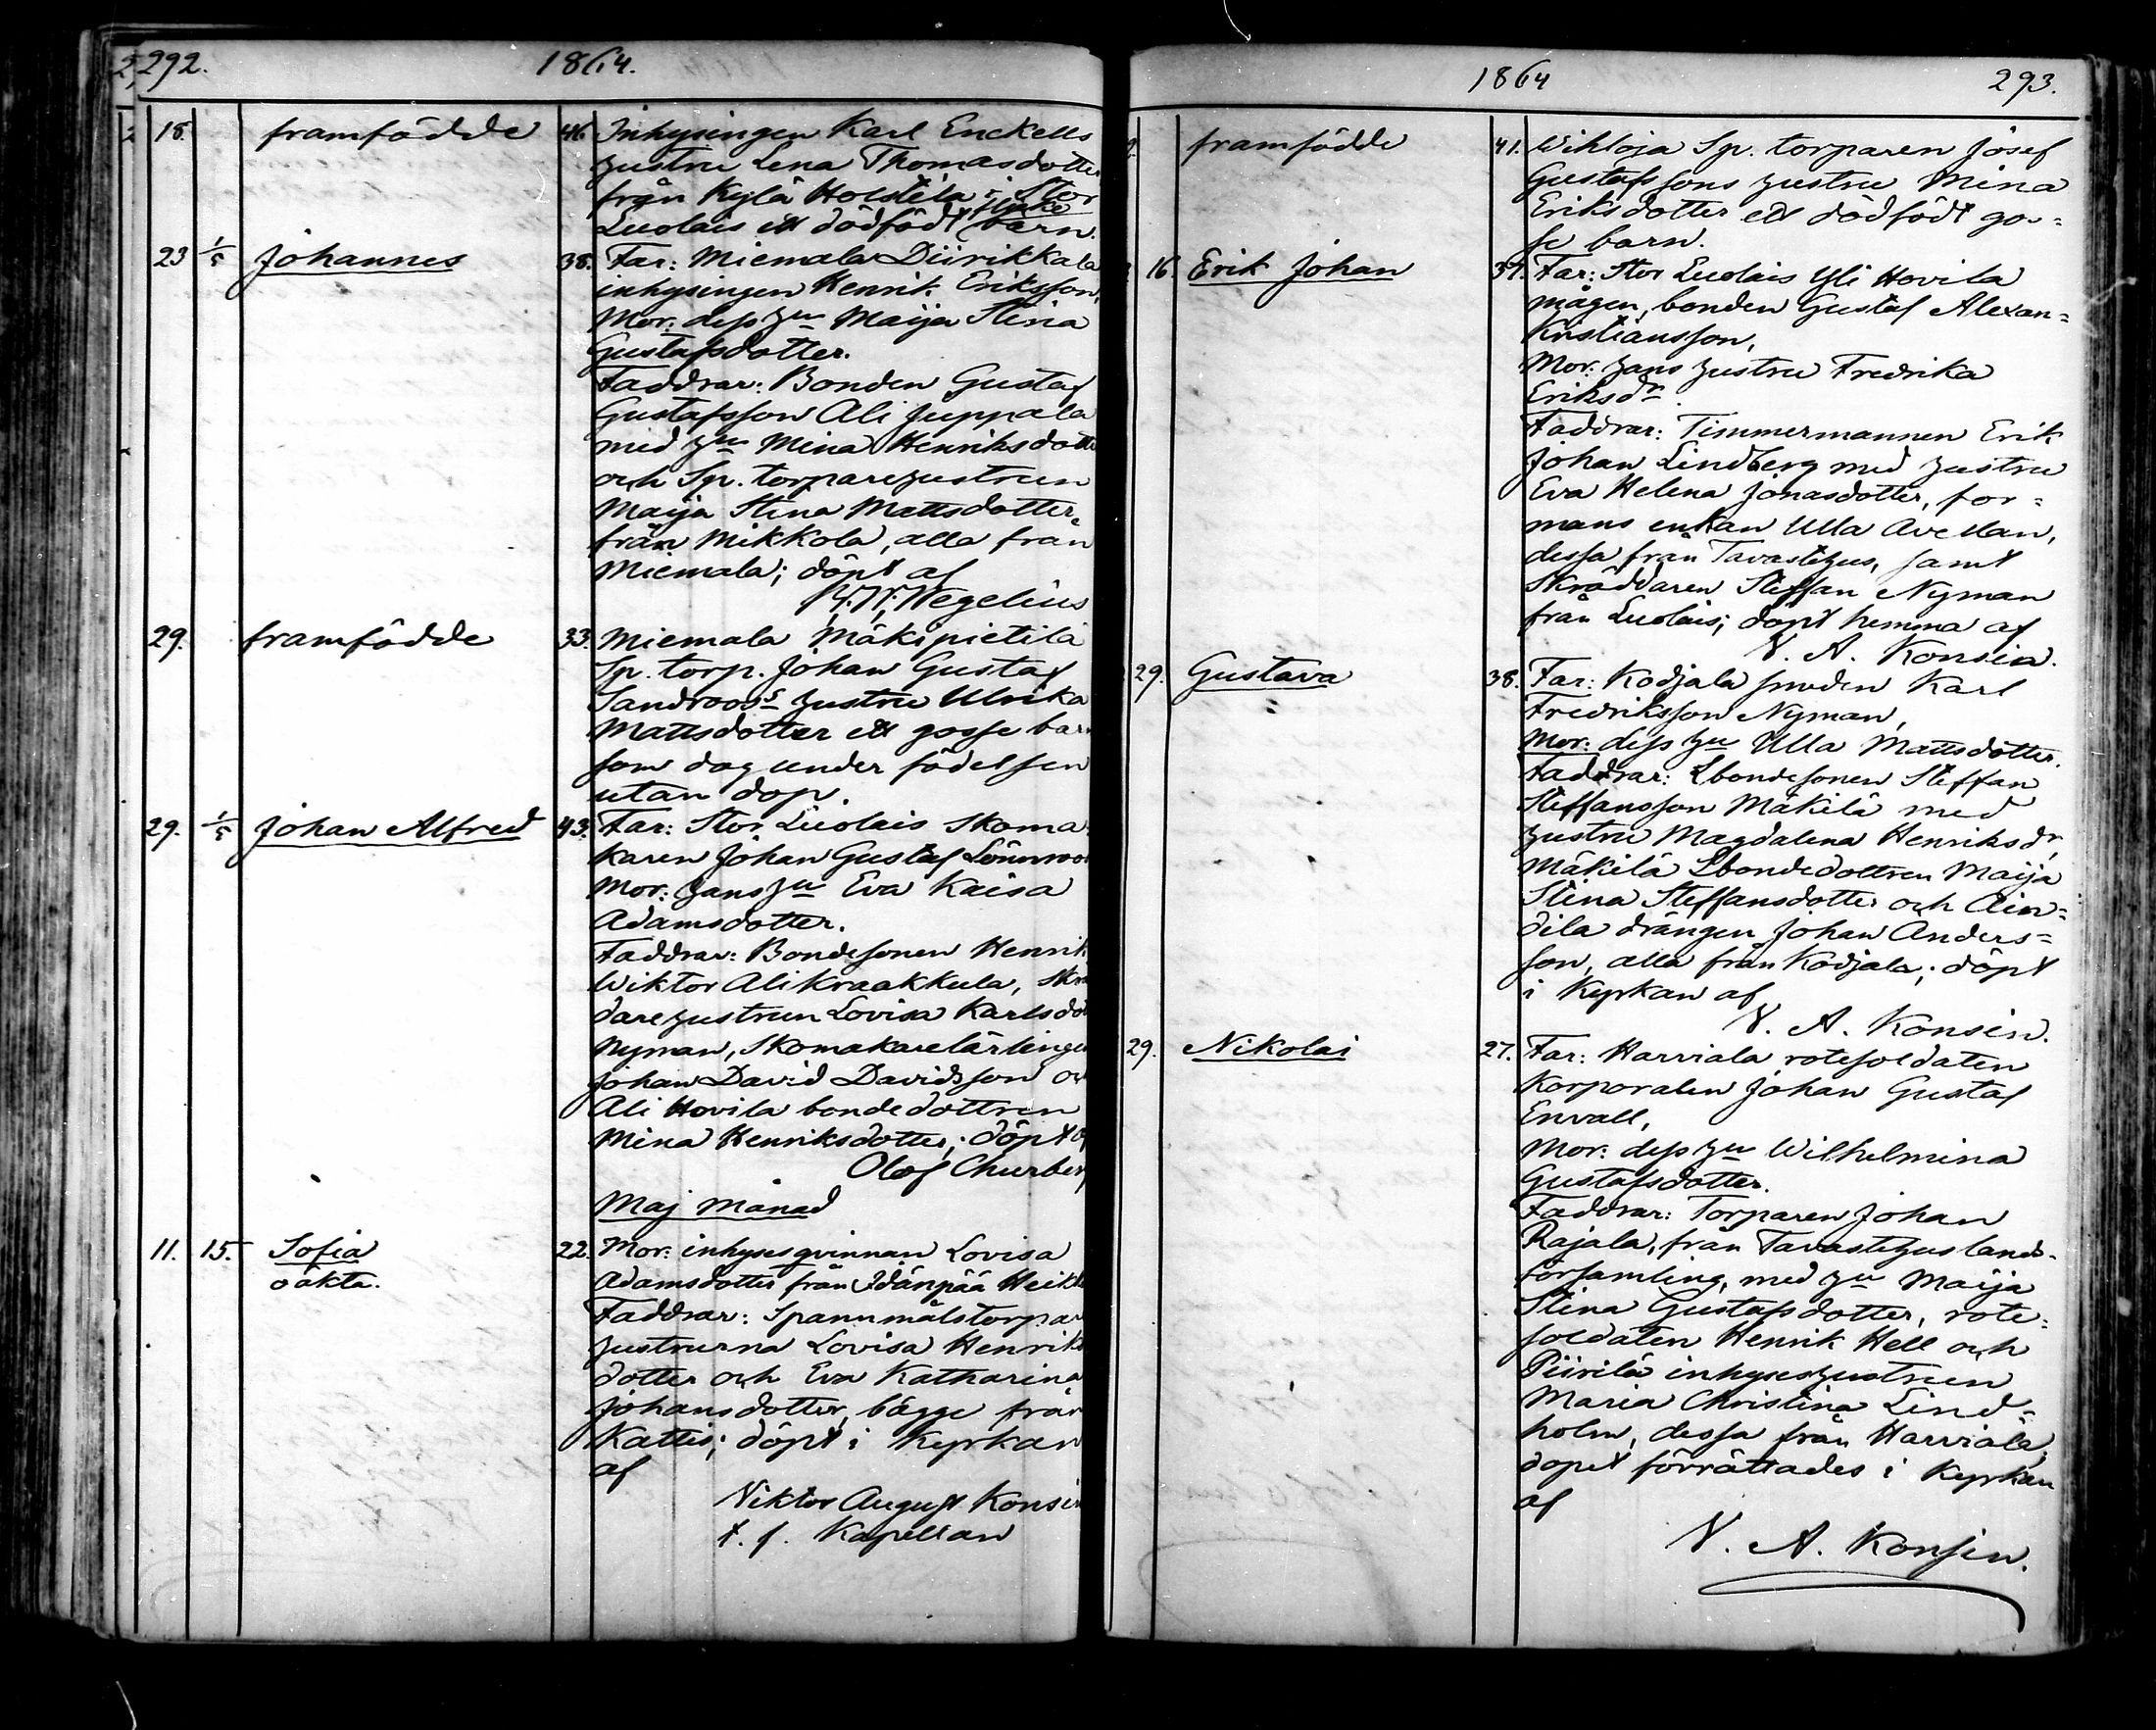 292.
1864.
18.
framfödde
46.
Inhysingen Karl Enckells
hustru Lena Thomasdotter
från Kylä Holstila i Stor
flicke
Luolais ett dödfödt barn.
23
1/5
Johannes
38.
Far: Miemala Diirikkala
inhysingen Henrik Eriksson,
Mor: dess hu Maija Stina
Gustafsdotter.
Faddrar: Bonden Gustaf
Gustafsson Ali Juppala
med hu Mina Henriksdott
och Sp. torparehustrun
Maija Stina Mattsdotter
från Mikkola, alla från
Miemala; döpt af
Wegelius
29.
framfödde
33.
Miemala Mäkipietilä
Sp. torp. Johan Gustaf
Sandroos's hustru Ulrika
Mattsdotter ett gosse bar
som dog under födelsen
utan dop.
29.
1/5
Johan Alfred
43.
Far: Stor Luolais Skoma
karen Johan Gustaf Lönnroo
Mor: hans hu Eva Kaisa
Adamsdotter.
Faddrar: Bondesonen Henrik
Wiktor Ali Kraakkula, Skrä
darehustrun Lovisa Karlsdot
Nyman, Skomakarelärlingen
Johan David Davidsson oc
Ali Hovila bondedottren
Mina Henriksdotter; döpt af
Olof Churberg
Maj månad
11.
15.
Sofia
oäkta.
22.
Mor: inhysesqvinnan Lovisa
Adamsdotter från Idänpää Heikk
Faddrar: Spannmålstorpar
hustrurna Lovisa Henriks
dotter och Eva Katharina
Johansdotter, bägge från
Kattis; döpt i Kyrkan
af
Viktor August Konsin
t. f. Kapellan
1864
293.
framfödde
41.
Wiktoja Sp. torparen Josef
Gustafssons hustru Mina
Eriksdotter ett dödfödt gos=
se barn.
16.
Erik Johan
37.
Far: Stor Luolais Yli Hovila
mågen, bonden Gustaf Alexan=
Kristiansson,
Mor: hans hustru Fredrika
Eriksdr.
Faddrar: Timmermannen Erik
Johan Lindberg med hustru
Eva Helena Jonasdotter, for=
mans enkan Ulla Avellan,
dessa från Tavastehus, samt
Skräddaren Steffan Nyman
från Luolais; döpt hemma af
V. A. Konsin.
29.
Gustava
38.
Far: Kodjala smeden Karl
Fredriksson Nyman,
Mor: dess hu Ulla Mattsdotter.
Faddrar: Lbondesonen Steffan
Steffansson Mäkilä med
hustru Magdalena Henriksdr,
Mäkilä Lbondedottren Maija
Stina Steffansdotter och Ain=
dila drängen Johan Anders=
son, alla från Kodjala; döpt
i Kyrkan af
V. A. Konsin.
29.
Nikolai
27.
Far: Harviala rotesoldaten
Korporalen Johan Gustaf
Envall,
Mor: dess hu Wilhelmina
Gustafsdotter.
Faddrar: Torparen Johan
Rajala, från Tavastehus lands=
församling, med hu Maija
Stina Gustafsdotter, rote=
soldaten Henrik Hell och
Piirilä inhyseshustrun
Maria Christina Lind=
holm, dessa från Harviala;
dopet förrättades i Kyrkan
af
V. A. Konsin.